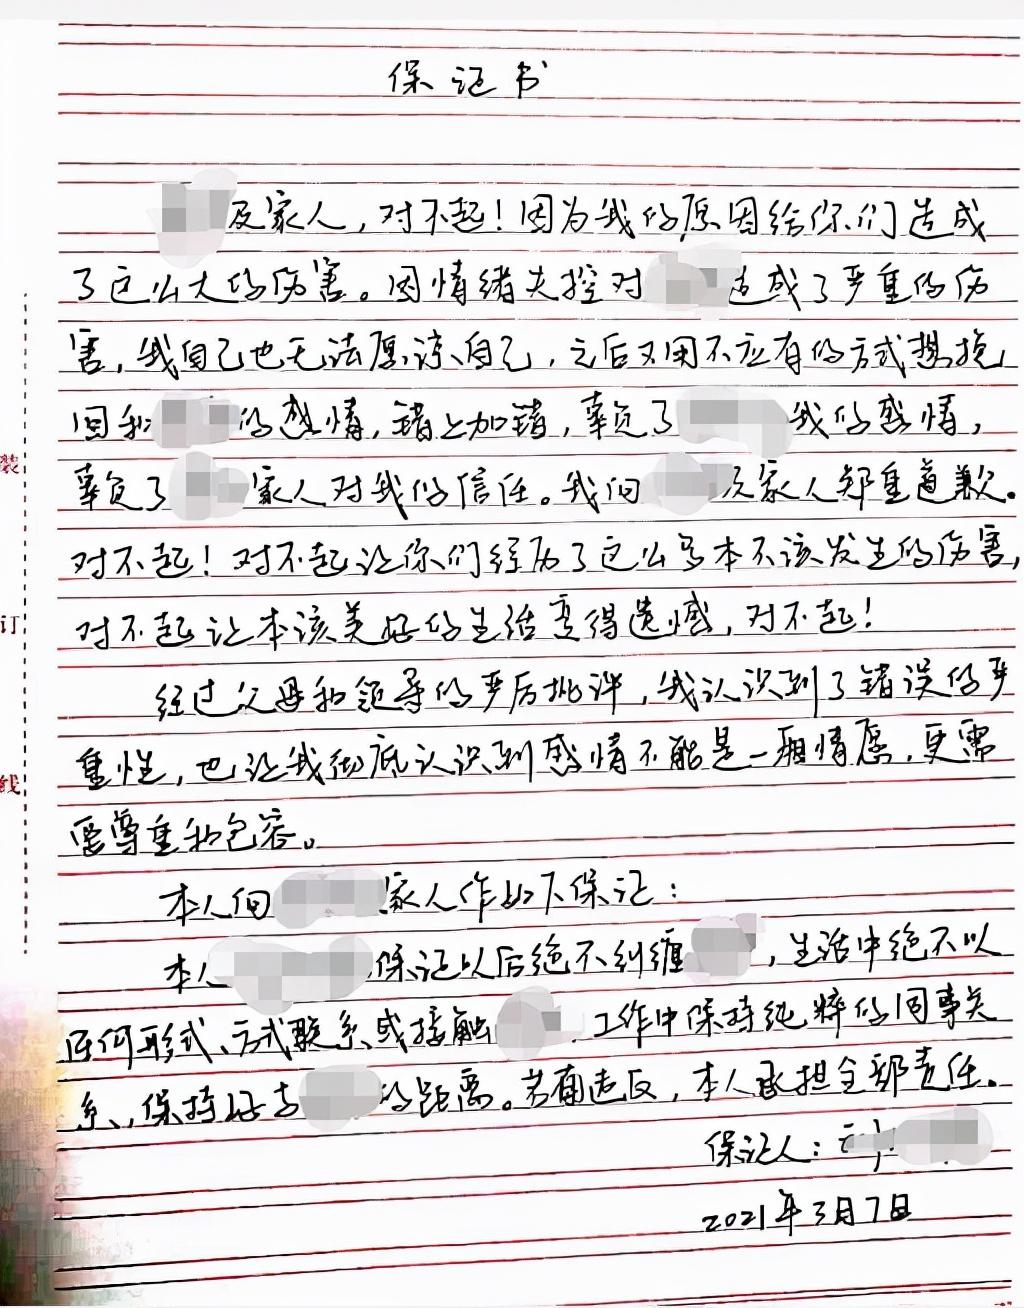 保证书
及家人，对不起！因为我的原因给你们造成
了这么大的伤害。因情绪失控对 造成了严重的伤
害，我自己也无法愿谅自己，之后又用不应有的方式想挽
回和 的感情，错上加错，辜负了 我的感情，
辜负了 家人对我的信任。我向 及家人郑重道歉。
对不起！对不起让你们经历了这么多本不该发生的伤害，
对不起让本该美好的生活变得遗憾，对不起！
经过父母和领导的严厉批评，我认识到了错误的严
重性，也让我彻底认识到感情不能是一厢情愿，更需
要尊重和包容。
本人向 家人作如下保证：
本人 保证以后绝不纠缠 ，生活中绝不以
任何形式、方式联系或接触 工作中保持纯粹的同事关
系，保持好与 的距离。若有违反，本人承担全部责任。
保证人：
2021年3月7日
装
订
线